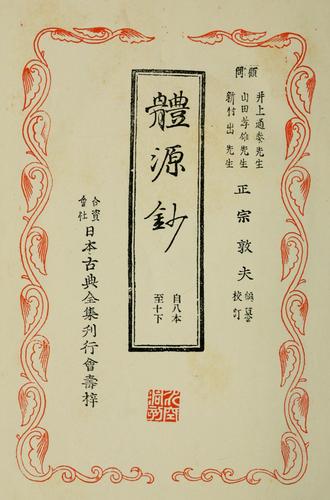 顧問
井上通泰先生
山田孝雄先生
新村出先生
正宗敦夫
編纂
校訂
體源鈔
自八本
至十下
合資
會社
日本古典全集刊行會壽梓